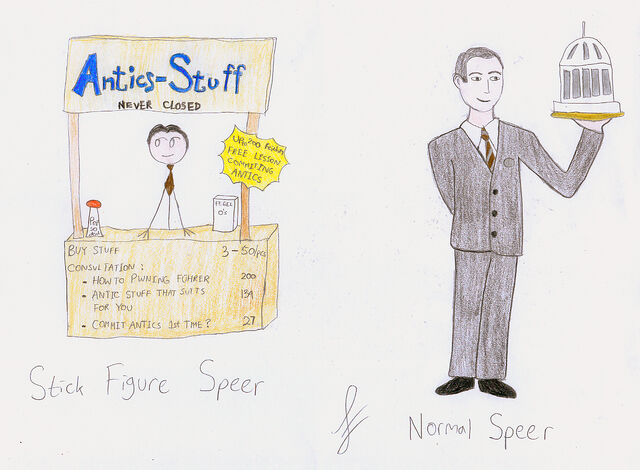 Antics-Stuff
NEVER CLOSED
FREE LESSON
COMMITING
ANTICS
BUY STUFF 3-50/pcs
CONSULTATION:
- HOW TO PWNING FÜHRER 200
- ANTIC STUFF THAT SUITS 134
FOR YOU
- COMMIT ANTICS 1st TIME? 27
Stick Figure Speer
Normal Speer